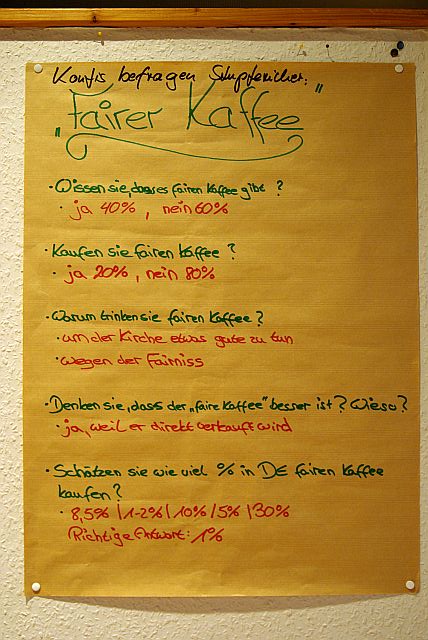 Konfis befragen Stupfericher:
„Fairer Kaffee"
· Wissen sie, dass es fairen Kaffee gibt ?
· ja 40% , nein 60%
· Kaufen sie fairen Kaffee ?
· ja 20% , nein 80%
· Warum trinken sie fairen Kaffee ?
· um der Kirche etwas gute zu tun
· wegen der Fairniss
· Denken sie, dass der „faire Kaffee" besser ist ? Wieso ?
· ja, weil er direkt verkauft wird
· Schätzen sie wie viel % in DE fairen Kaffee
kaufen ?
· 8,5% | 1-2% | 10% | 5% | 30%
Richtige Antwort: 1%